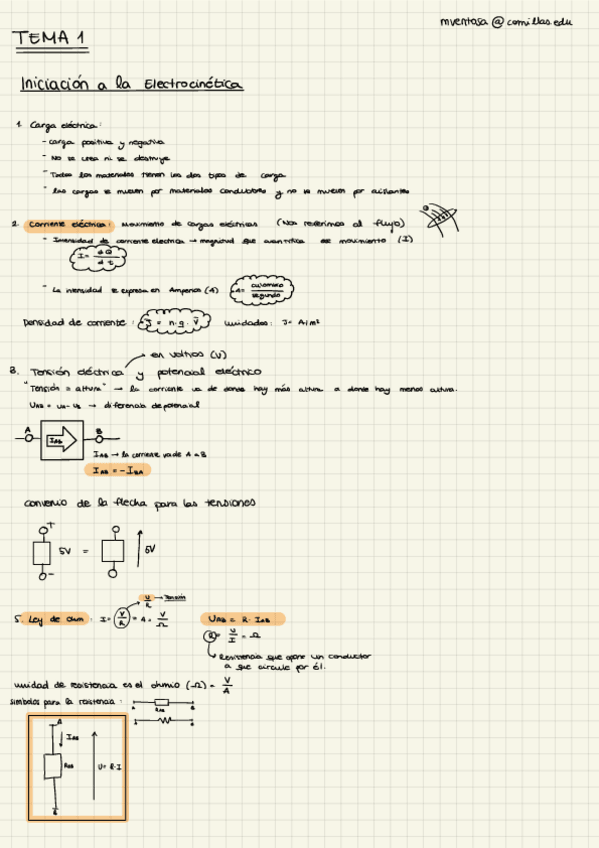 mventosa @ comillas.edu
TEMA 1
Iniciación a la Electrocinética
1. Carga eléctrica:
- carga positiva y negativa
- No se crea ni se destruye
- Todos los materiales tienen los dos tipos de carga
- Las cargas se mueven por materiales conductores y no se mueven por aislantes
2. Corriente eléctrica: Movimiento de cargas eléctricas (Nos referimos al flujo)
- Intensidad de corriente electrica → magnitud que cuantifica ese movimiento (I)
I = dQ / dt
- La intensidad se expresa en Amperios (A) A = culombio / segundo
Densidad de corriente: J = n·q·v unidades: J = A/m²
en voltios (V)
3. Tensión eléctrica y potencial eléctrico
"Tensión = altura" → la corriente va de donde hay más altura a donde hay menos altura.
UAB = UA - UB → diferencia de potencial
A IAB B
IAB → la corriente va de A a B
IAB = -IBA
convenio de la flecha para las tensiones
+ 5V = 5V
-
U/R → Tensión
5. Ley de Ohm: I = V/R = A = V/Ω UAB = R · IAB
R = V/I = Ω
Resistencia que opone un conductor
a que circule por él.
unidad de resistencia es el ohmio (Ω) = V/A
símbolos para la resistencia: A RAB B
A B
A
IAB
RAB U = R·I
B